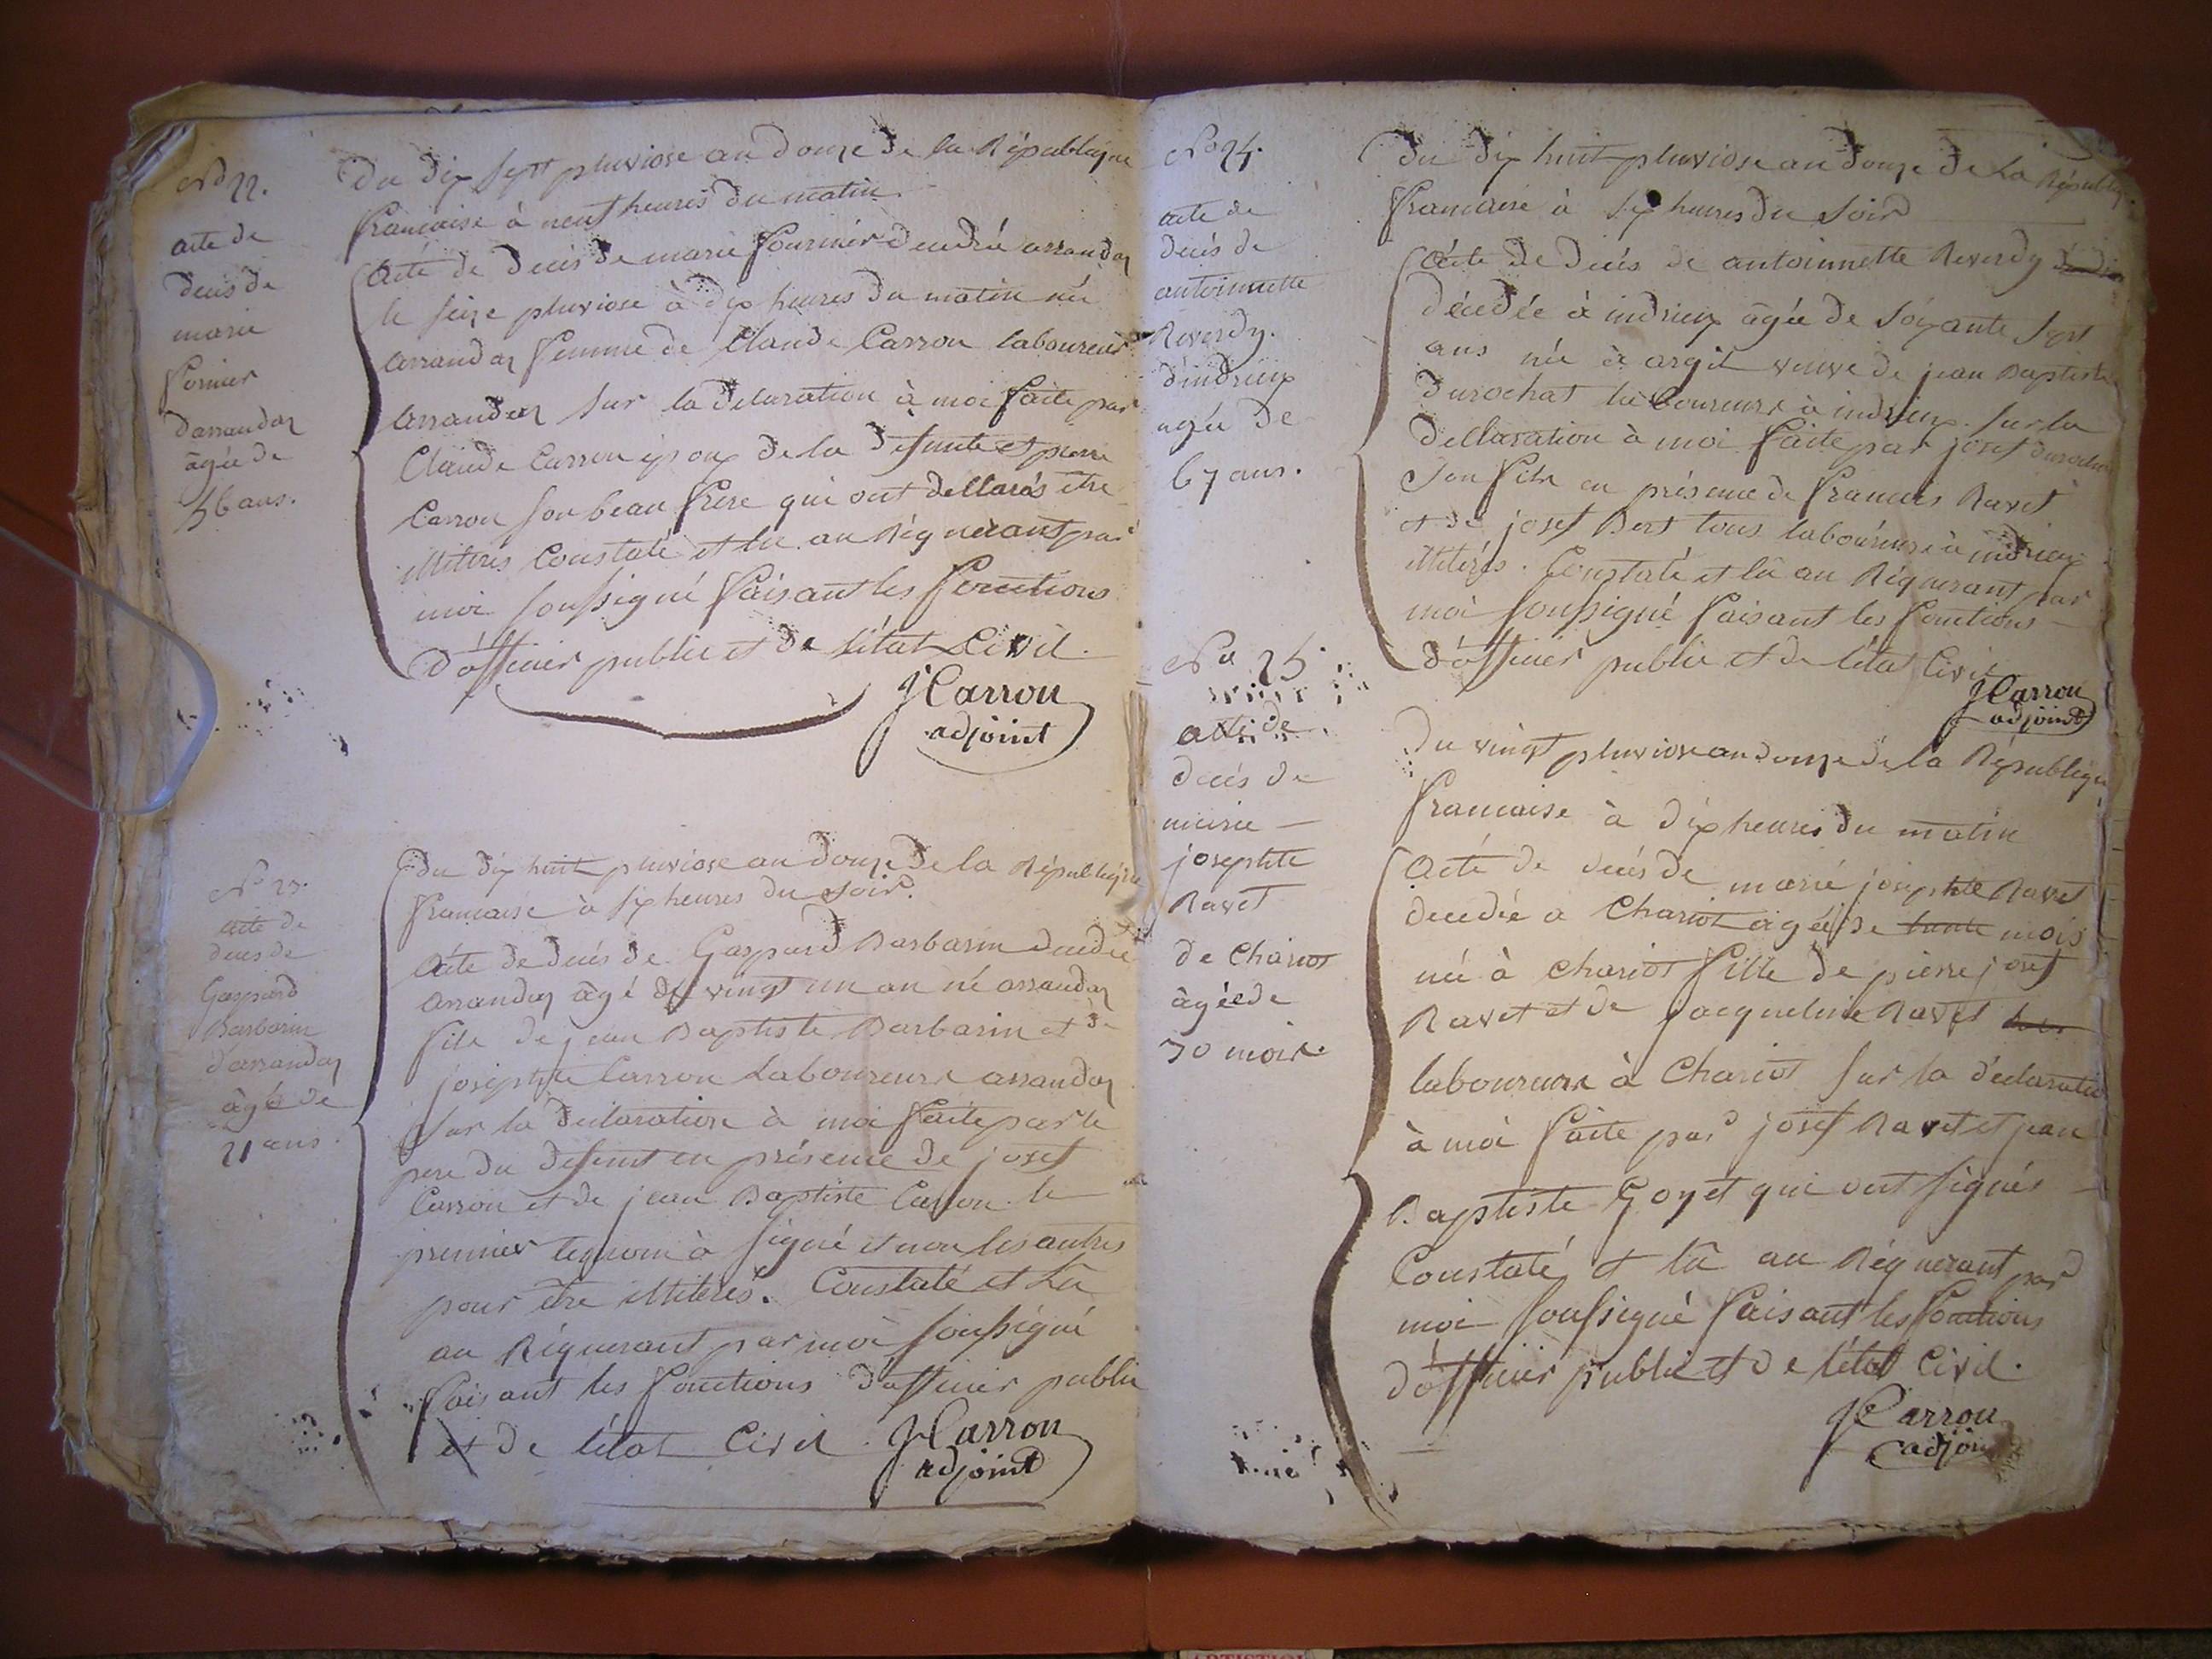 No 22.
acte de
decés de
marie
fornier
darrandaz
âgée de
56 ans.
Du dix sept pluviose an douze de la République
francaise à neuf heures du matin
Acte de decés de marie fournier decedée arrandaz
le seize pluviose à dix heures du matin née
arrandaz femme de Claude Carron laboureur
arrandaz sur la declaration à moi faite par
Claude Carron epoux de la defunte et pierre
Carron son beau frere qui ont dellarés être
illiterés Constaté et lu au Réquerant par
moi soussigné faisant les fonctions
d'officier public et de l'état Civil.
JCarron
adjoint
No 23.
acte de
decés de
Gaspard
Barbarin
d'arrandaz
âgé de
21 ans.
Du dix huit pluviose an douze de la République
francaise à six heures du soir.
Acte de decés de Gaspard Barbarin decedé
arrandaz âgé de vingt un an né arrandaz
fils de jean Baptiste Barbarin et de
josephte Carron Laboureurs arrandaz
sur la declaration à moi faite par le
pere du defunt en présence de josef
Carron et de jean Baptiste Carron le
premier temoin à signé et non les autres
pour être illiterés. Constaté et Lu
au Réquerant par moi soussigné
faisant les fonctions d'officier public
et de l'état Civil.
JCarron
adjoint
No 24.
acte de
decés de
antoinette
Reverdy.
d'indrieux
agée de
67 ans.
Du dix huit pluviose an douze de La Républiq
francaise à six heures du soir
Acte de decés de antoinnette Reverdy
décedée à indrieux âgée de soixante sept
ans née à argit veuve de jean Baptiste
Durochat laboureurs à indrieux sur la
dellaration à moi faite par josef durochat
son fils en présence de francois Ravet
et de josef Bert tous laboureurs à indrieux
illiterés. Constaté et lû au Réquerant par
moi soussigné faisant les fonctions
d'officier public et de l'état Civil
JCarron
adjoint
No 25.
acte de
decés de
marie
josephte
Ravet
de Chariot
âgée de
30 mois.
Du vingt pluviose an douze de la République
francaise à dix heures du matin
Acte de decés de marie josephte Ravet
decedée a Chariot agée de trente mois
née à chariot fille de pierre josef
Ravet et de jacqueline Ravet
laboureurs à Chariot sur la declaration
à moi faite par josef Ravet et jean
Baptiste Goyet qui ont signés
Constaté et lû au Réquerant par
moi soussigné faisant les fonctions
d'officier public et de l'état Civil.
JCarron
adjoint